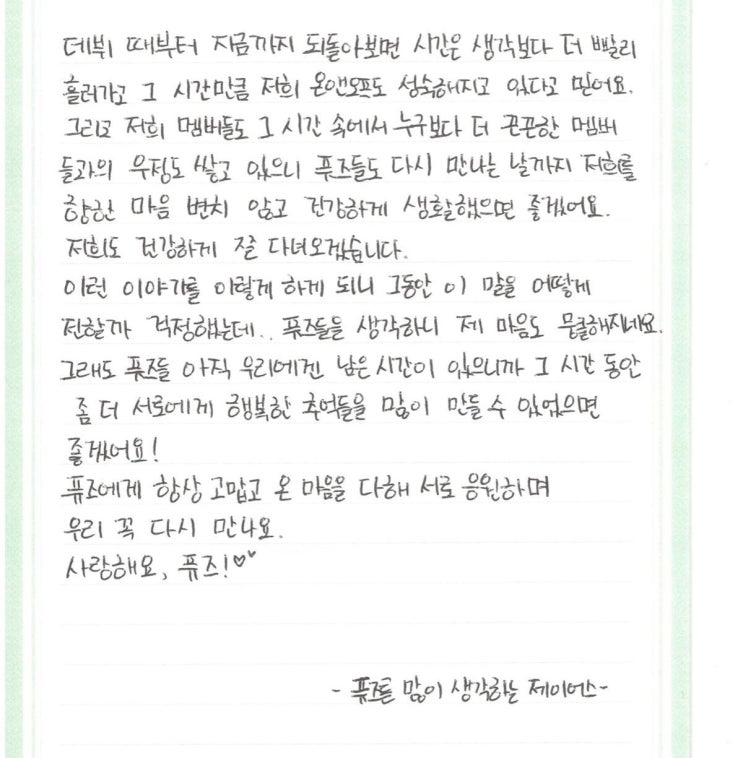 데뷔 때부터 지금까지 되돌아보면 시간은 생각보다 더 빨리
흘러가고 그 시간만큼 저희 온앤오프도 성숙해지고 있다고 믿어요.
그리고 저희 멤버들도 그 시간 속에서 누구보다 더 끈끈한 멤버
들과의 우정도 쌓고 있으니 퓨즈들도 다시 만나는 날까지 저희를
향한 마음 변치 않고 건강하게 생활했으면 좋겠어요.
저희도 건강하게 잘 다녀오겠습니다.
이런 이야기를 이렇게 하게 되니 그동안 이 말을 어떻게
전할까 걱정했는데.. 퓨즈들을 생각하니 제 마음도 뭉클해지네요.
그래도 퓨즈들 아직 우리에겐 남은 시간이 있으니까 그 시간 동안
좀 더 서로에게 행복한 추억들을 많이 만들 수 있었으면
좋겠어요!
퓨즈에게 항상 고맙고 온 마음을 다해 서로 응원하며
우리 꼭 다시 만나요.
사랑해요, 퓨즈!♡♡
- 퓨즈를 많이 생각하는 제이어스-